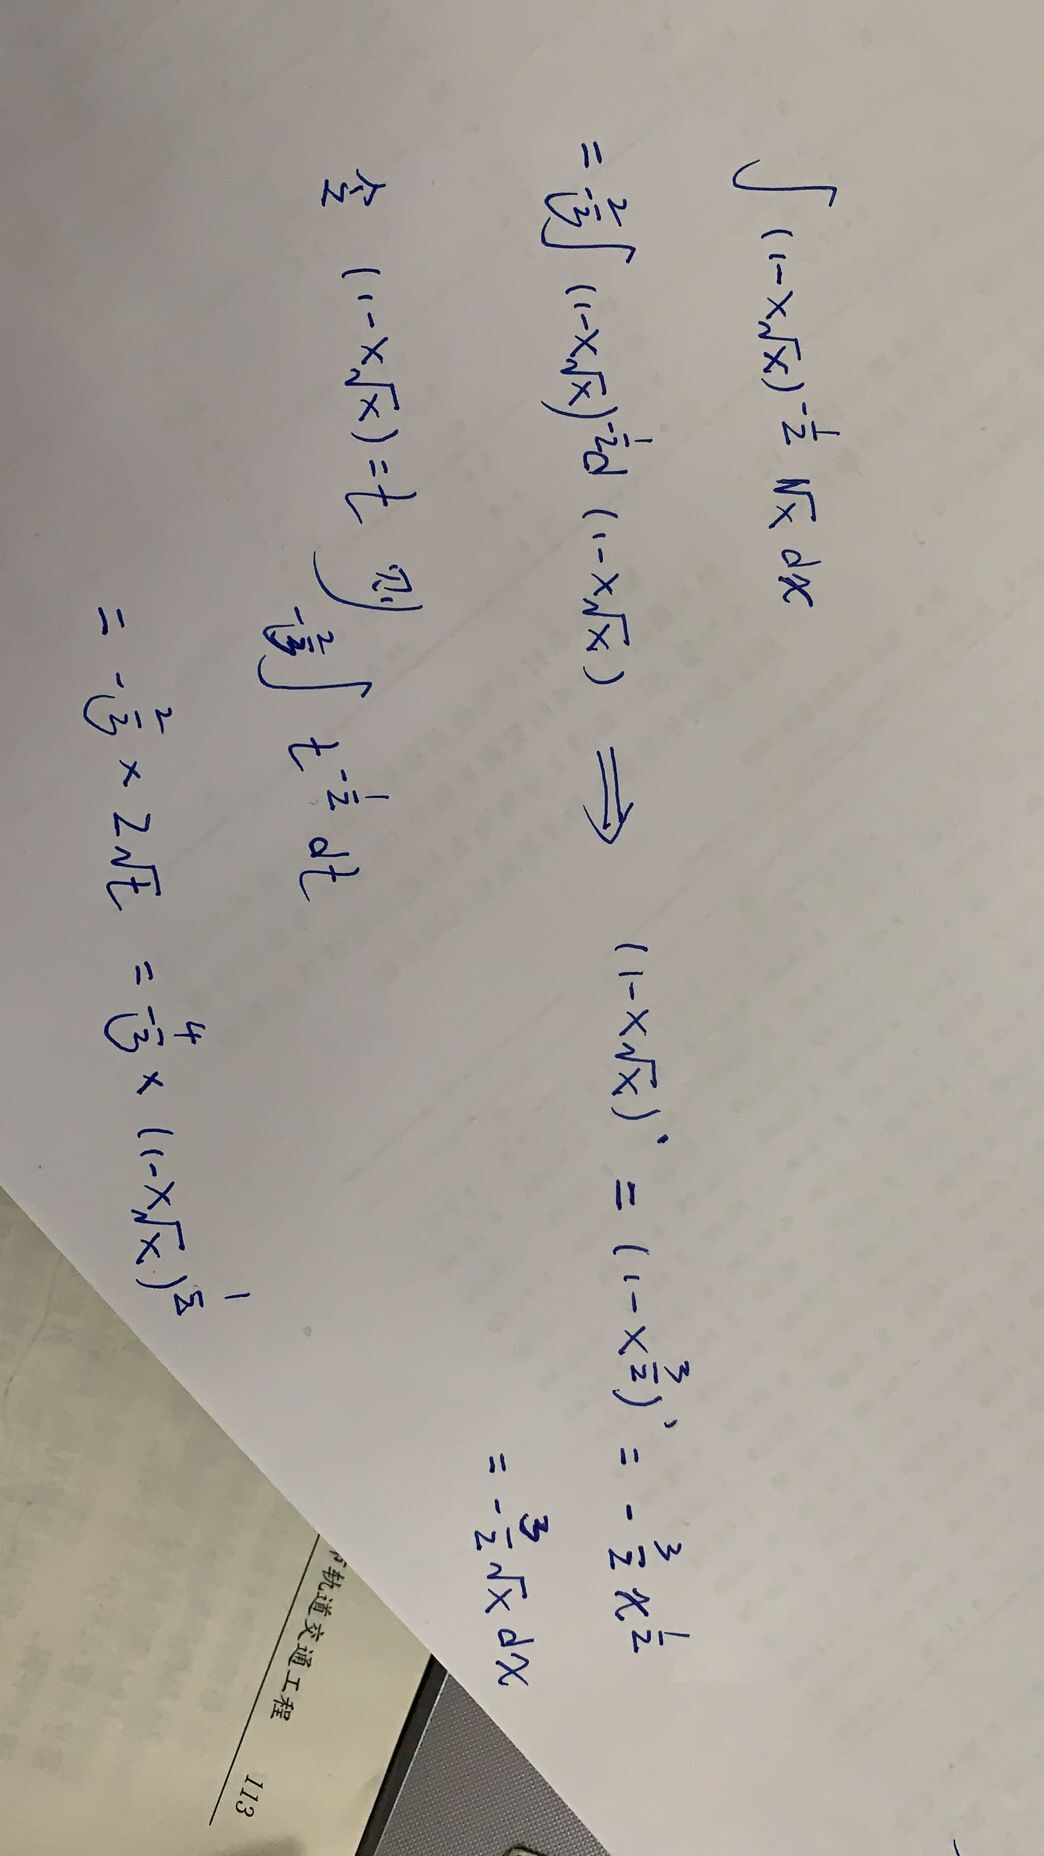 ∫ (1-x√x)^{-\frac{1}{2}} √x dx
= -\frac{2}{3} ∫ (1-x√x)^{-\frac{1}{2}} d (1-x√x) ⇒ (1-x√x)' = (1-x^{\frac{3}{2}})' = -\frac{3}{2} x^{\frac{1}{2}}
= -\frac{3}{2} √x dx
令 (1-x√x) = t 则
-\frac{2}{3} ∫ t^{-\frac{1}{2}} dt
= -\frac{2}{3} × 2√t = -\frac{4}{3} × (1-x√x)^{\frac{1}{2}}
轨道交通工程 113